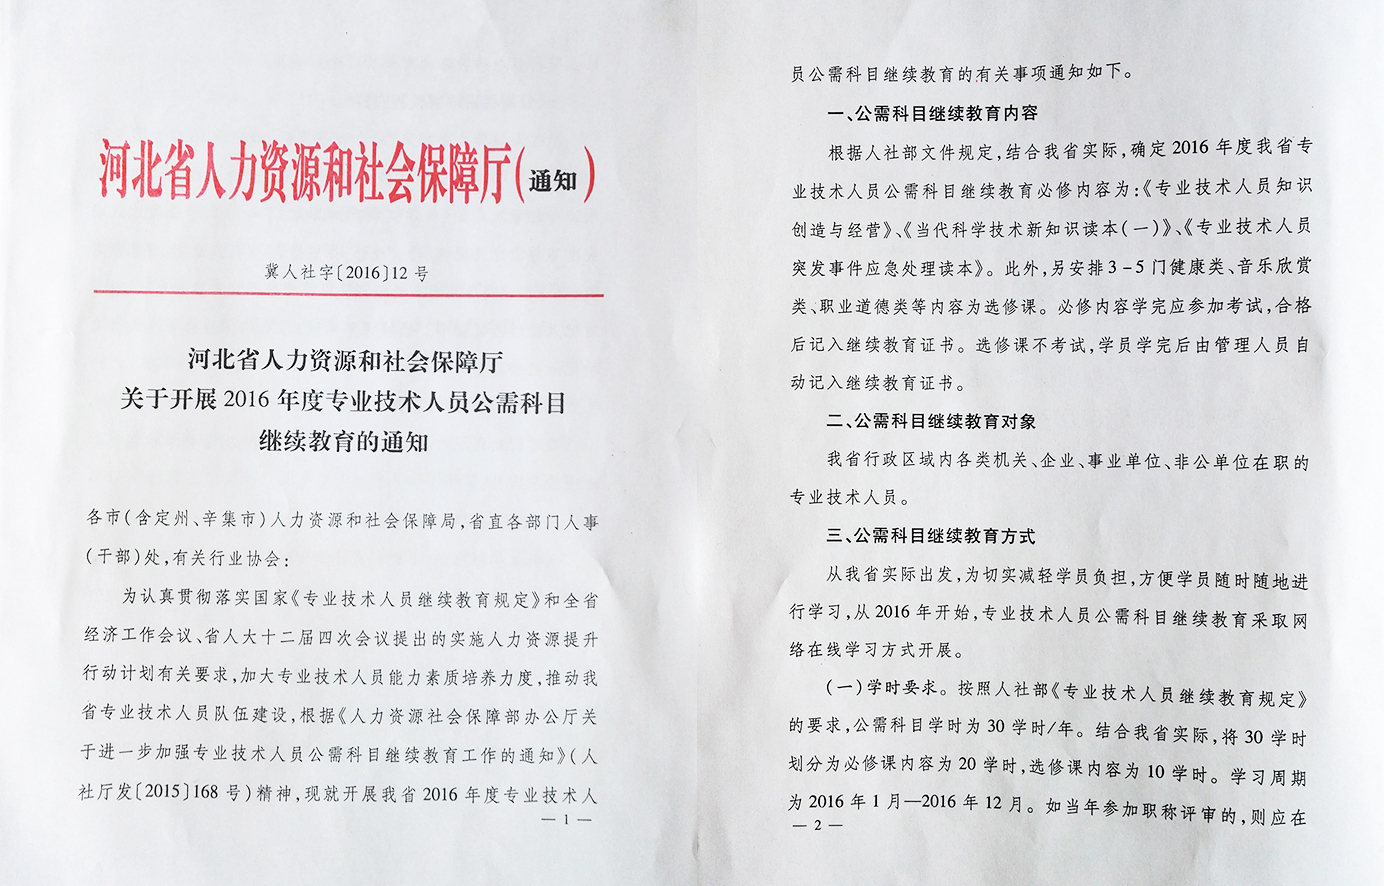 河北省人力资源和社会保障厅(通知)
冀人社字〔2016〕12 号
河北省人力资源和社会保障厅
关于开展 2016 年度专业技术人员公需科目
继续教育的通知
各市(含定州、辛集市)人力资源和社会保障局,省直各部门人事
(干部)处,有关行业协会:
为认真贯彻落实国家《专业技术人员继续教育规定》和全省
经济工作会议、省人大十二届四次会议提出的实施人力资源提升
行动计划有关要求,加大专业技术人员能力素质培养力度,推动我
省专业技术人员队伍建设,根据《人力资源社会保障部办公厅关
于进一步加强专业技术人员公需科目继续教育工作的通知》(人
社厅发〔2015〕168 号)精神,现就开展我省 2016 年度专业技术人
— 1 —
员公需科目继续教育的有关事项通知如下。
一、公需科目继续教育内容
根据人社部文件规定,结合我省实际,确定 2016 年度我省专
业技术人员公需科目继续教育必修内容为:《专业技术人员知识
创造与经营》、《当代科学技术新知识读本(一)》、《专业技术人员
突发事件应急处理读本》。此外,另安排 3－5 门健康类、音乐欣赏
类、职业道德类等内容为选修课。必修内容学完应参加考试,合格
后记入继续教育证书。选修课不考试,学员学完后由管理人员自
动记入继续教育证书。
二、公需科目继续教育对象
我省行政区域内各类机关、企业、事业单位、非公单位在职的
专业技术人员。
三、公需科目继续教育方式
从我省实际出发,为切实减轻学员负担,方便学员随时随地进
行学习,从 2016 年开始,专业技术人员公需科目继续教育采取网
络在线学习方式开展。
(一)学时要求。按照人社部《专业技术人员继续教育规定》
的要求,公需科目学时为 30 学时/年。结合我省实际,将 30 学时
划分为必修课内容为 20 学时,选修课内容为 10 学时。学习周期
为 2016 年 1 月—2016 年 12 月。如当年参加职称评审的,则应在
— 2 —